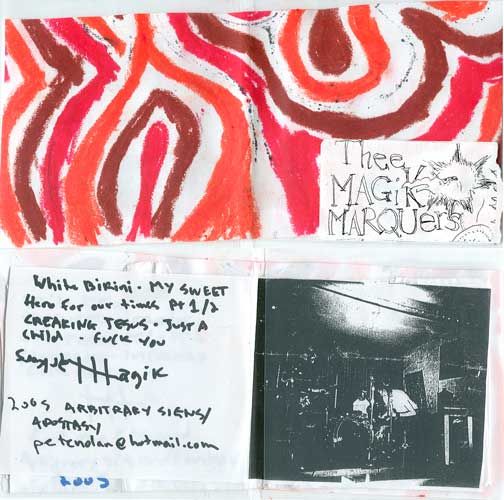 Thee
MAGiK
MARQUers
White Bikini - MY SWEET
Hero For our times Pt 1/2
CREAKING JESUS - JUST A
CHILD - FUCK YOU
Magik
2005 ARBITRARY SIGNS/
APOSTASY
petenolan@hotmail.com
2005